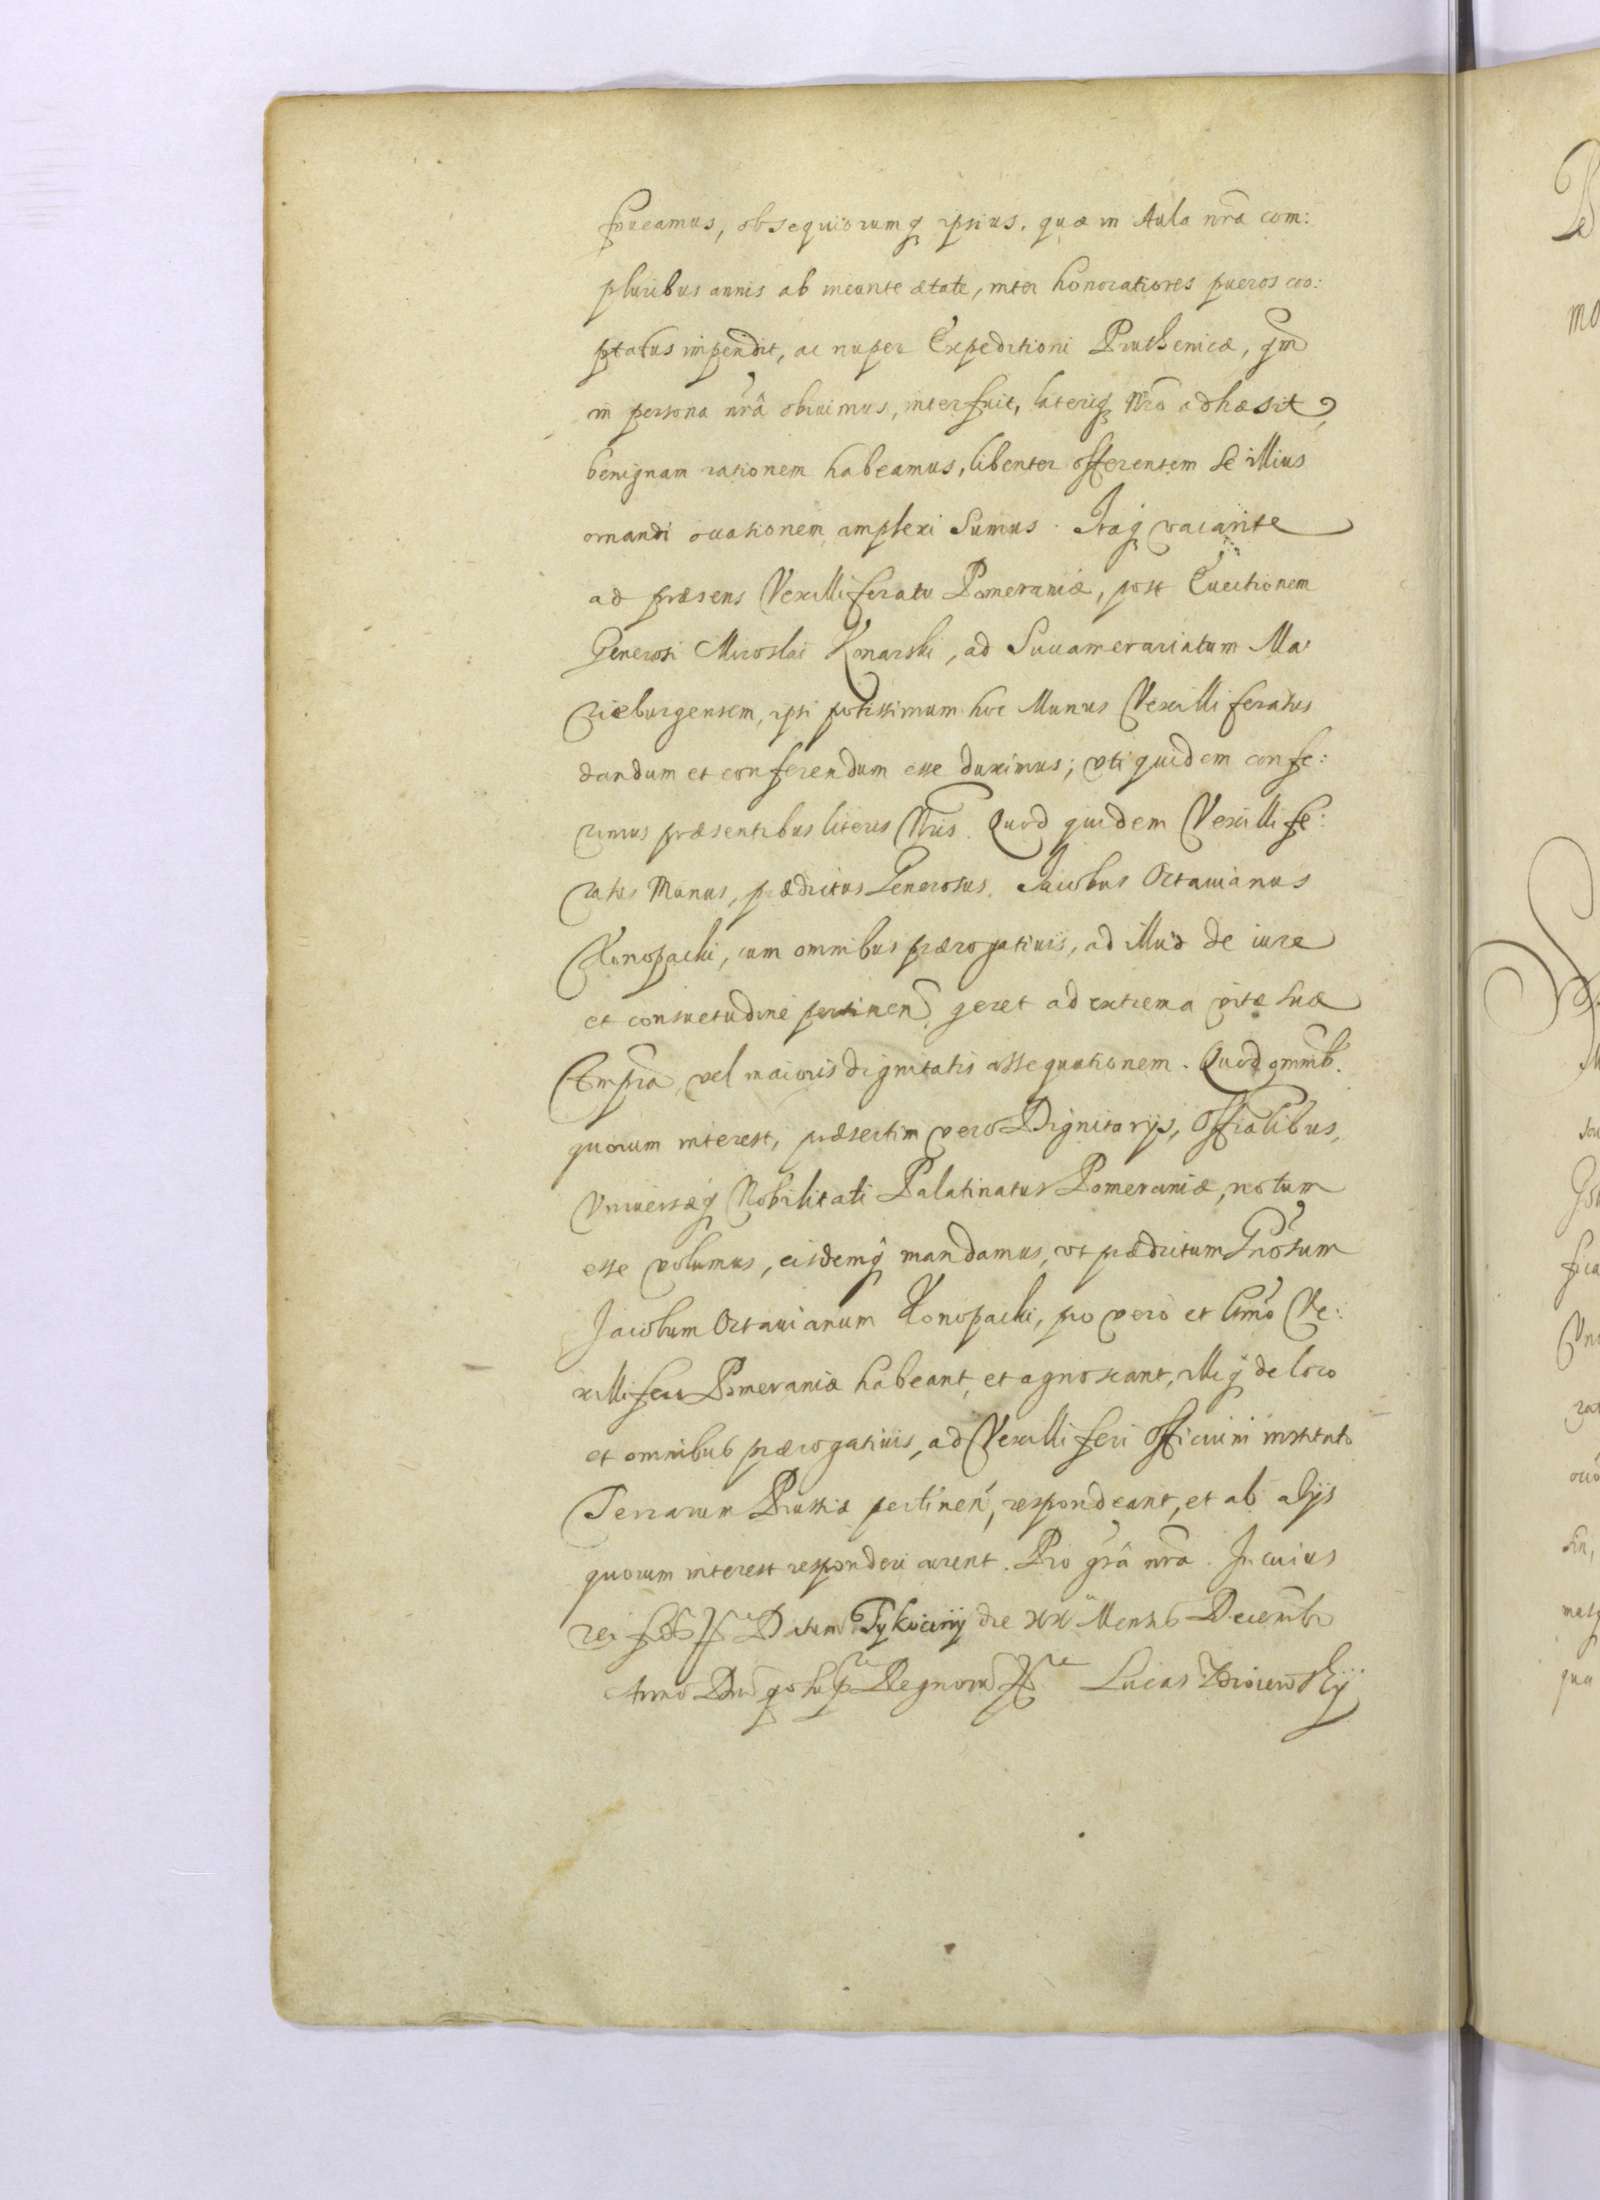 foueamus, obsequiorumq ipsius, quæ in Aula nrã com:
pluribus annis ab ineunte ætate, inter honoratiores pueros coo:
ptatus impendit, ac nuper Expeditioni Pruthenicæ, qm̃
in persona nr̃â obiuimus, interfuit, lateriq Nr̃o adhæsit,
benignam rationem habeamus, libenter offerentem se illius
ornandi occationem amplexi Sumus. Itaq vacante
ad præsens Vexilliferatu Pomeraniæ, post Euectionem
Generosi Miroslai Konarski, ad Succamerariatum Ma:
riæburgensem, ipsi potissimum hoc Munus Vexilliferatus
dandum et conferendum esse duximus; vti quidem confe:
rimus præsentibus literis Nr̃is. Quod quidem Vexillife:
ratus Munus, prædictus Generosus. Jacobus Octauianus
Konopacki, cum omnibus prærogatiuis, ad illud de iure
et consuetudine pertinen̄ geret ad extrema vitæ suæ
Tempra vel maioris dignitatis assequutionem. Quod omnib.
quorum interest, præsertim vero Dignitarijs, Officialibus,
Vniuersæq Nobilitati Palatinatus Pomeraniæ, notum
esse volumus, eisdemq mandamus, vt prædictum Gnõsum
Jacobum Octauianum Konopacki, pro vero et Ltmõ Ve:
xillifero Pomeraniæ habeant, et agnoscant, illiq de loco
et omnibus prærogatiuis, ad Vexilliferi Officium instituto
Terrarum Prussiæ pertinen̄, respondeant, et ab alijs
quorum interest responderi curent. Pro grâ nrã. In cuius
rei fidẽ Datum Tykocinij die XX Mensis Decemb
Anno Dni Regnorũ Lucas